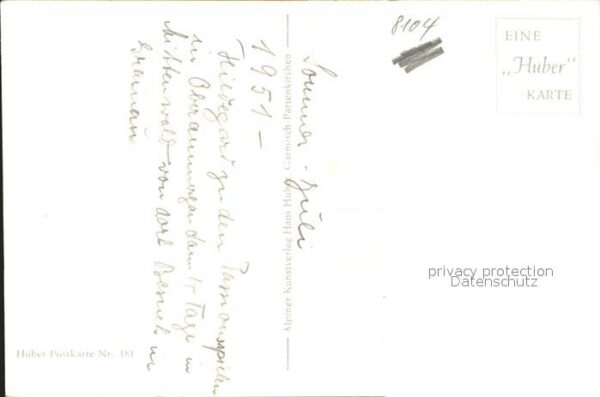 8104
EINE
„Huber"
KARTE
Sommer - Juli
1951 -
Hildegard zu den Passionsspielen
in Oberammergau dann 14 Tage in
Mittenwald von dort Besuch in
Grainau
Alpiner Kunstverlag Hans Huber, Garmisch-Partenkirchen
Huber Postkarte Nr. 181
privacy protection
Datenschutz